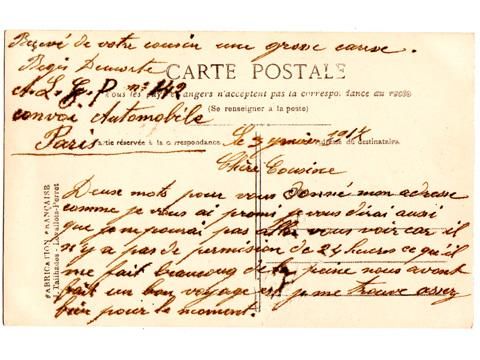 Recevé de votre cousin une grosse caresse.
Régis
CARTE POSTALE
A. L. G. P. n° 142
Tous les pays étrangers n'acceptent pas la correspondance au recto
(Se renseigner à la poste)
convoi Automobile
Paris
Partie réservée à la correspondance.
du destinataire.
Le 3 janvier 1917
Chère Cousine
Deux mots pour vous donné mon adresse
comme je vous ai promi je vous dirai aussi
que je ne pourai pas allé vous voir car il
n'y a pas de permission de 24 heures ce qui
me fait beaucoup de la peine nous avont
fait un bon voyage et je me trouve assez
bien pour le moment.
FABRICATION FRANÇAISE
Tailhades - Levallois-Perret